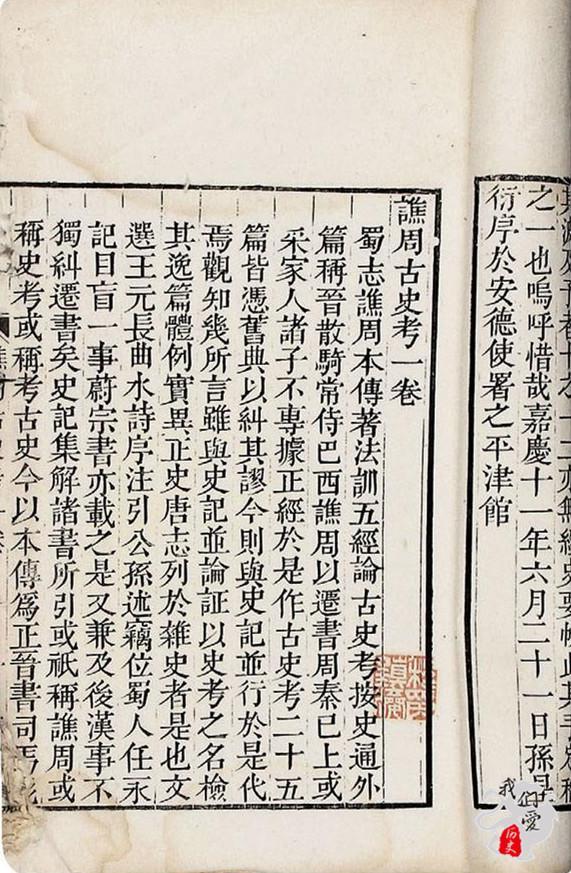 之一也嗚呼惜哉嘉慶十一年六月二十一日孫星
衍序於安德使署之平津館
譙周古史考一卷
蜀志譙周本傳著法訓五經論古史考按史通外
篇稱晉散騎常侍巴西譙周以遷書周秦已上或
采家人諸子不專據正經於是作古史考二十五
篇皆憑舊典以糾其謬今則與史記並行於是代
焉觀知幾所言雖與史記並論証以史考之名檢
其逸篇體例實異正史唐志列於雜史者是也文
選王元長曲水詩序注引公孫述竊位蜀人任永
記目盲一事蔚宗書亦載之是又兼及後漢事不
獨糾遷書矣史記集解諸書所引或祇稱譙周或
稱史考或稱考古史今以本傳爲正晉書司馬彪
我们爱
历史